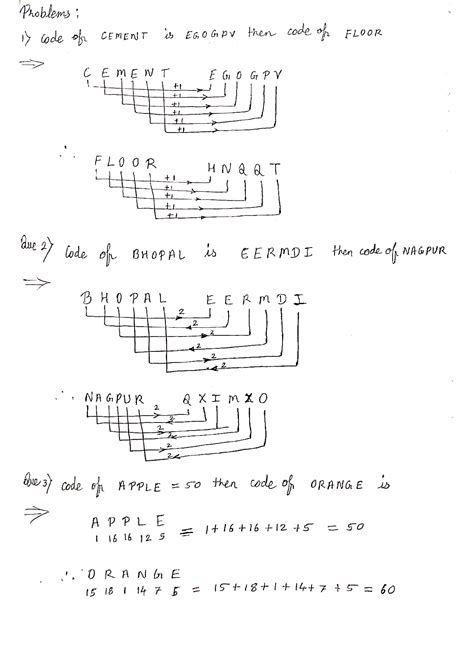 Problems :
1) Code of CEMENT is EGOGPV then code of FLOOR
⇒
C E M E N T E G O G P V
+1
+1
+1
+1
+1
∴ F L O O R H N Q Q T
+1
+1
+1
+1
+1
Que 2) Code of BHOPAL is EERMDI then code of NAGPUR
⇒
B H O P A L E E R M D I
2
2
2
2
2
2
∴ NAGPUR Q X I M X O
2
2
2
2
2
2
Que 3) code of APPLE = 50 then code of ORANGE is
⇒
A P P L E
1 16 16 12 5 = 1+16+16+12+5 = 50
∴ O R A N G E
15 18 1 14 7 5 = 15+18+1+14+7+5 = 60